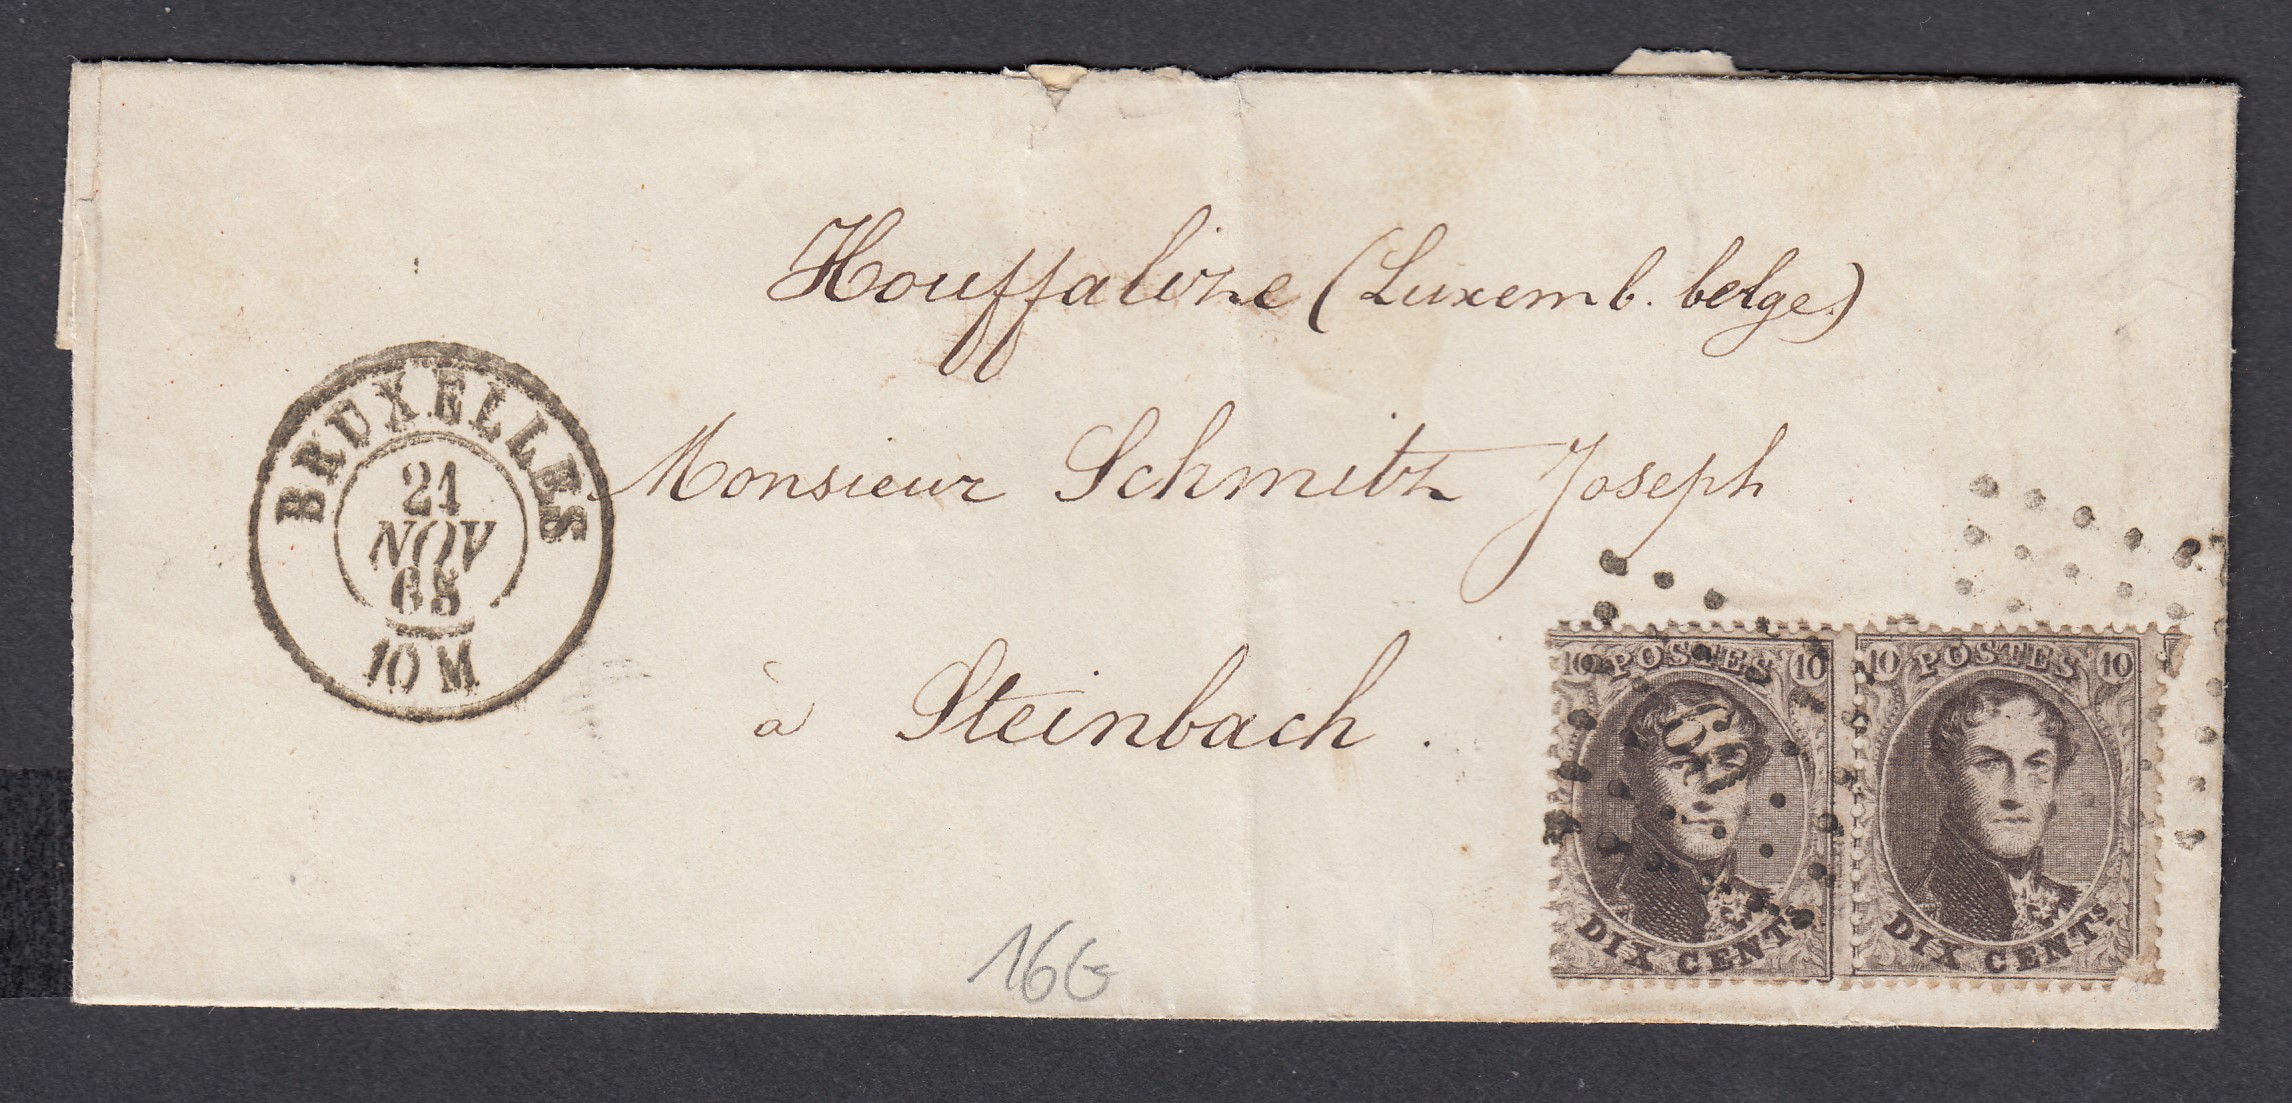 Houffalize (Luxemb. belge)
Monsieur Schmitz Joseph
à Steinbach.
BRUXELLES
21
NOV
65
10 M
10 POSTES 10
DIX CENTS.
10 POSTES 10
DIX CENTS.
60
16G